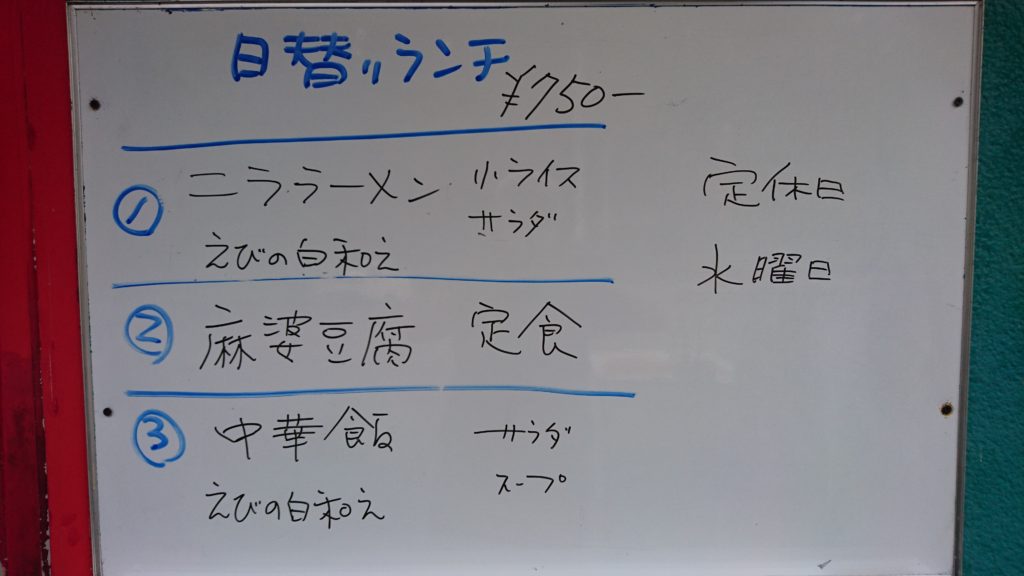 日替りランチ
¥750-
① ニララーメン 小ライス
サラダ
えびの白和え
② 麻婆豆腐 定食
③ 中華飯 サラダ
スープ
えびの白和え
定休日
水曜日